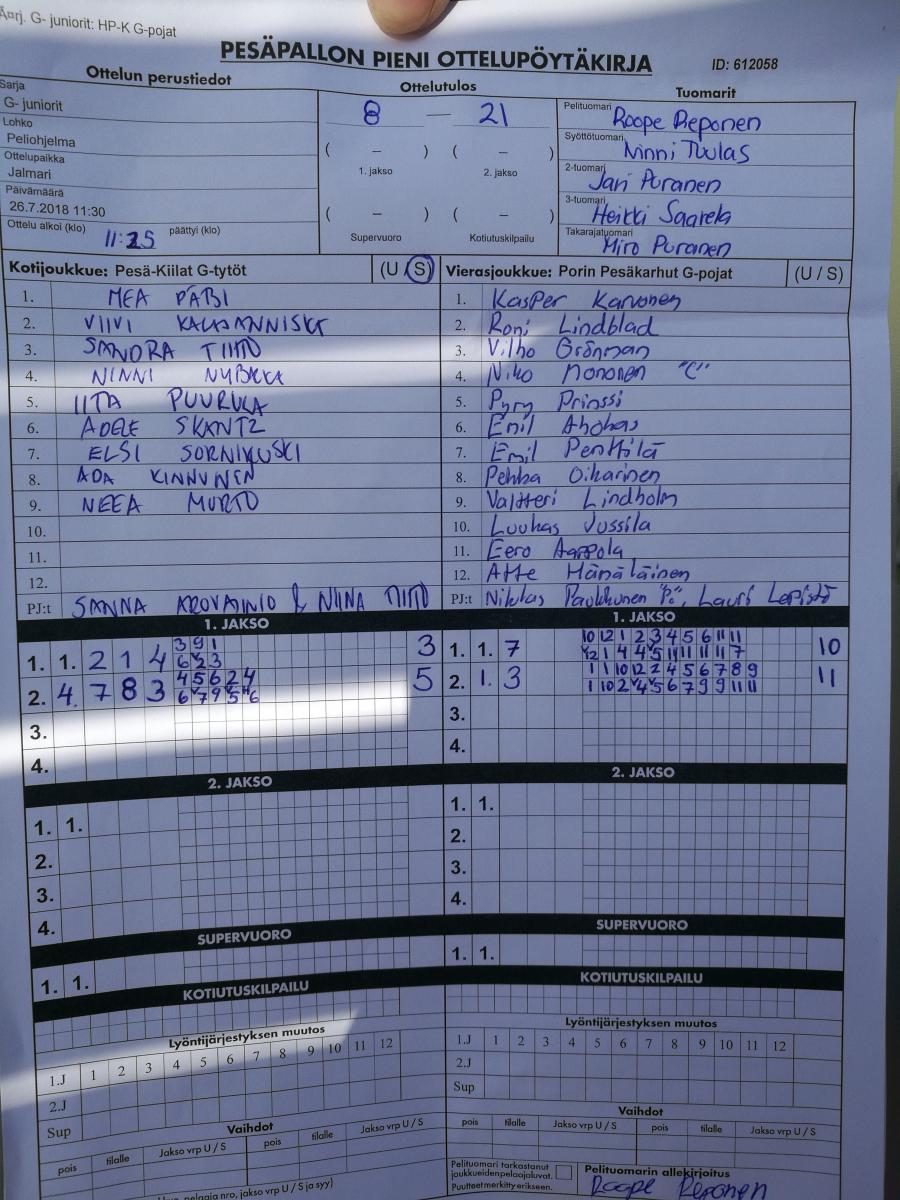 rj. G- juniorit: HP-K G-pojat
PESÄPALLON PIENI OTTELUPÖYTÄKIRJA
ID: 612058
Ottelun perustiedot
Ottelutulos
Tuomarit
Sarja
G- juniorit
Lohko
Peliohjelma
Ottelupaikka
Jalmari
Päivämäärä
26.7.2018 11:30
Ottelu alkoi (klo) 11:25 päättyi (klo)
8 — 21
( – ) ( – )
1. jakso 2. jakso
( – ) ( – )
Supervuoro Kotiutuskilpailu
Pelituomari Roope Reponen
Syöttötuomari Ninni Tuulas
2-tuomari Jari Puranen
3-tuomari Heikki Saarela
Takarajatuomari Miro Puranen
Kotijoukkue: Pesä-Kiilat G-tytöt (U / S)
1. MEA PÄBI
2. VIIVI
3. SANDRA TIITO
4. NINNI
5. IITA PUURULA
6. ADELE SKANTZ
7. ELSI
8. ADA KINNUNEN
9. NEEA MURTO
10.
11.
12.
PJ:t SANNA AROVAINIO & NIINA TIITO
Vierasjoukkue: Porin Pesäkarhut G-pojat (U / S)
1. Kasper Karvonen
2. Roni Lindblad
3. Vilho Grönman
4. Niko Mononen "C"
5. Pyry Prinssi
6. Emil Ahokas
7. Emil Penttilä
8. Pekka Oikarinen
9. Valtteri Lindholm
10. Luukas Jussila
11. Eero Aappola
12. Atte Hämäläinen
PJ:t Niklas Paukkunen "PJ", Lauri Lepistö
1. JAKSO
1. 1. 2 1 4 3 9 1 3
6 2 3
2. 4. 7 8 3 4 5 6 2 4 5
6 7 9 5 6
3.
4.
1. JAKSO
1. 1. 7 10 12 1 2 3 4 5 6 11 11 10
12 1 4 4 5 11 11 11 11 7
2. 1. 3 1 1 10 12 2 4 5 6 7 8 9 11
1 10 2 4 5 6 7 9 9 11 11
3.
4.
2. JAKSO
1. 1.
2.
3.
4.
2. JAKSO
1. 1.
2.
3.
4.
SUPERVUORO
1. 1.
SUPERVUORO
1. 1.
KOTIUTUSKILPAILU
KOTIUTUSKILPAILU
Lyöntijärjestyksen muutos
1.J 1 2 3 4 5 6 7 8 9 10 11 12
2.J
Sup
Lyöntijärjestyksen muutos
1.J 1 2 3 4 5 6 7 8 9 10 11 12
2.J
Sup
Vaihdot
pois tilalle Jakso vrp U / S pois tilalle Jakso vrp U / S
Vaihdot
pois tilalle Jakso vrp U / S pois tilalle Jakso vrp U / S
pelaaja nro, jakso vrp U / S ja syy)
Pelituomari tarkastanut
joukkueidenpelaajaluvat.
Puutteetmerkittyerikseen.
Pelituomarin allekirjoitus
Roope Reponen